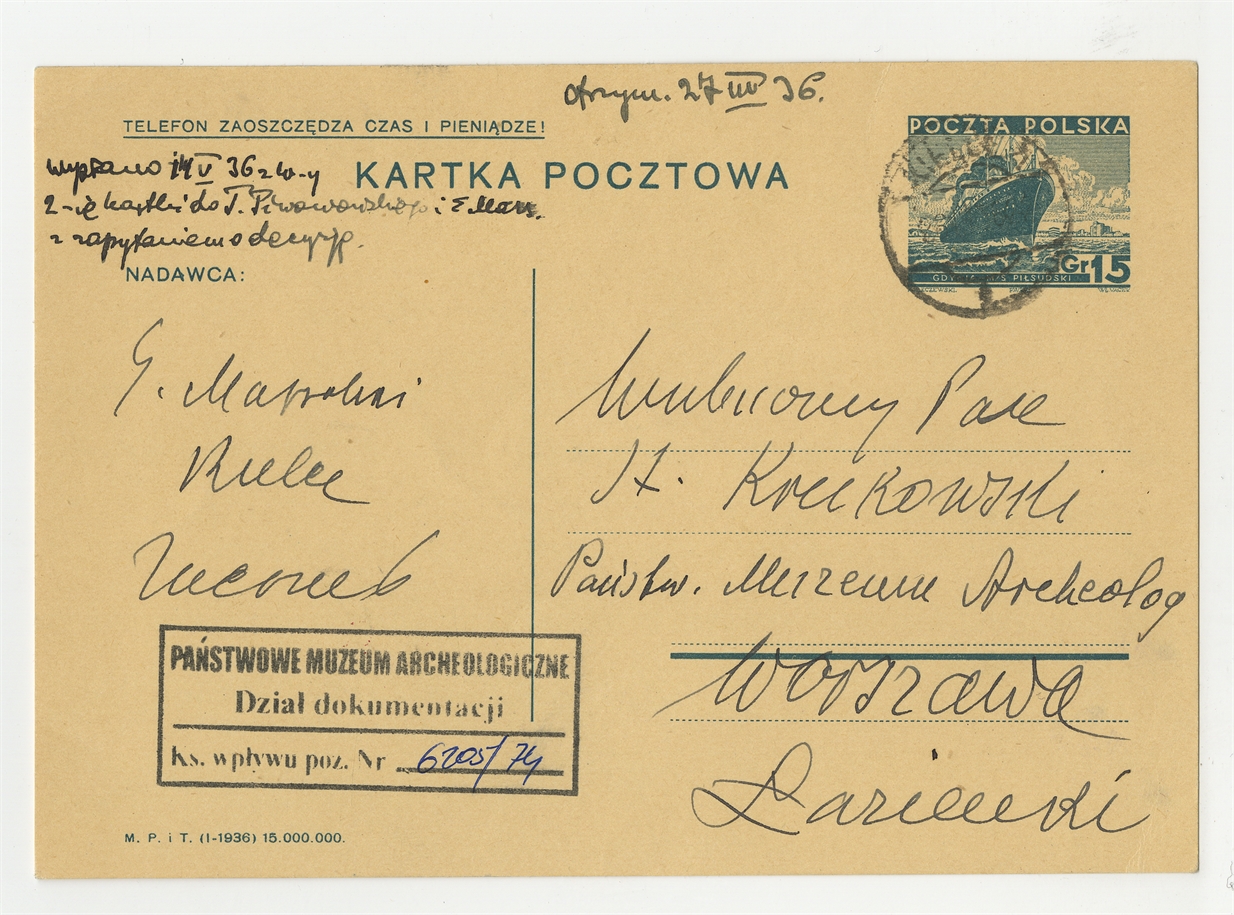 otrzym. 27 IV 36.
TELEFON ZAOSZCZĘDZA CZAS I PIENIĄDZE!
POCZTA POLSKA
KARTKA POCZTOWA
wysłano 14 V 36 z W-y
2-ie kartki do T. Piwowarskiego i E. Mass.
z zapytaniem o decyzję.
NADAWCA:
Gr 15
GDYNIA M/S PIŁSUDSKI
G.
Kielce
Wielmożny Pan
St. Krukowski
Państw. Muzeum Archeolog
Warszawa
Łazienki
PAŃSTWOWE MUZEUM ARCHEOLOGICZNE
Dział dokumentacji
Ks. wpływu poz. Nr 6205/74
M. P. i T. (I-1936) 15.000.000.